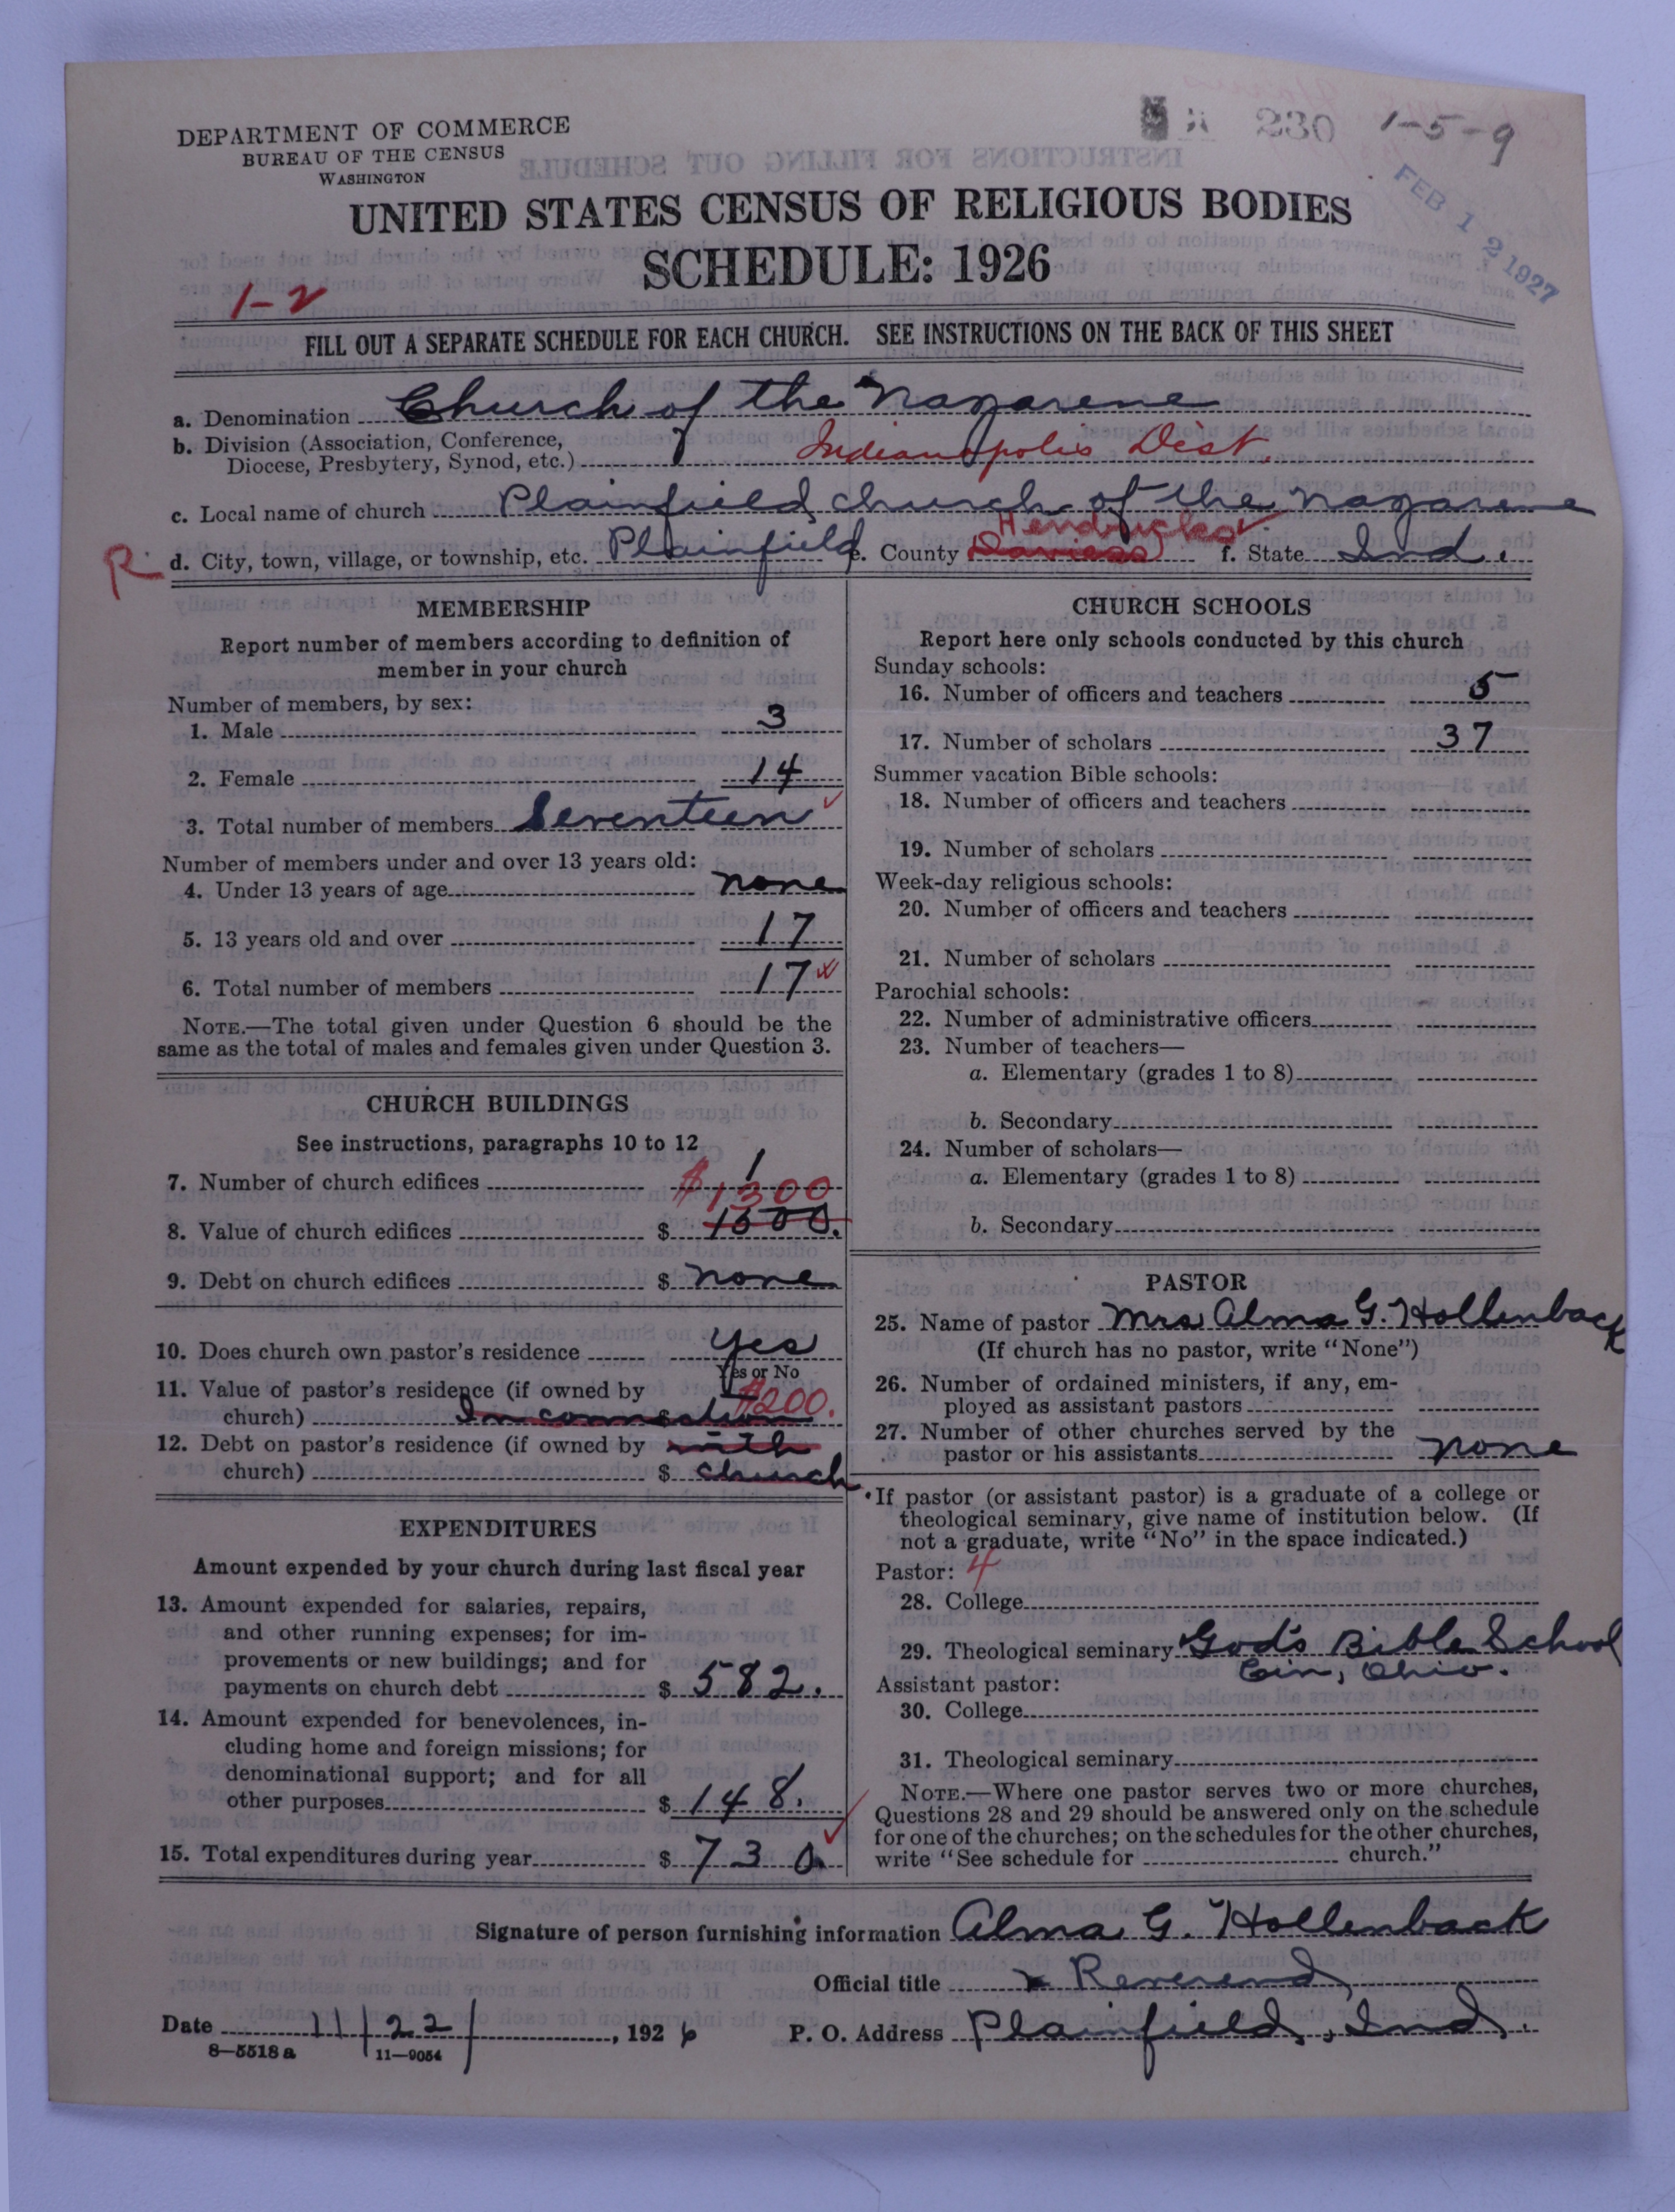 DEPARTMENT OF COMMERCE
BUREAU OF THE CENSUS
WASHINGTON
230 1-5-9
FEB 12 1927
UNITED STATES CENSUS OF RELIGIOUS BODIES
SCHEDULE: 1926
1-2
FILL OUT A SEPARATE SCHEDULE FOR EACH CHURCH. SEE INSTRUCTIONS ON THE BACK OF THIS SHEET
a. Denomination Church of the Nazarene
b. Division (Association, Conference,
Diocese, Presbytery, Synod, etc.) Indianapolis Dist.
c. Local name of church Plainfield church of the Nazarene
Hendricks
R d. City, town, village, or township, etc. Plainfield e. County Daviess f. State Ind.
MEMBERSHIP
Report number of members according to definition of
member in your church
Number of members, by sex:
1. Male 3
2. Female 14
3. Total number of members Seventeen
Number of members under and over 13 years old:
4. Under 13 years of age none
5. 13 years old and over 17
6. Total number of members 17
NOTE.—The total given under Question 6 should be the
same as the total of males and females given under Question 3.
CHURCH BUILDINGS
See instructions, paragraphs 10 to 12
7. Number of church edifices 1
$1300
8. Value of church edifices $ 1500.
9. Debt on church edifices $ none
10. Does church own pastor's residence yes
Yes or No
11. Value of pastor's residence (if owned by $200.
church) $ In connection
12. Debt on pastor's residence (if owned by with
church) $ church
EXPENDITURES
Amount expended by your church during last fiscal year
13. Amount expended for salaries, repairs,
and other running expenses; for im-
provements or new buildings; and for
payments on church debt $ 582.
14. Amount expended for benevolences, in-
cluding home and foreign missions; for
denominational support; and for all
other purposes $ 148.
15. Total expenditures during year $ 730.
CHURCH SCHOOLS
Report here only schools conducted by this church
Sunday schools:
16. Number of officers and teachers 5
17. Number of scholars 37
Summer vacation Bible schools:
18. Number of officers and teachers
19. Number of scholars
Week-day religious schools:
20. Number of officers and teachers
21. Number of scholars
Parochial schools:
22. Number of administrative officers
23. Number of teachers—
a. Elementary (grades 1 to 8)
b. Secondary
24. Number of scholars—
a. Elementary (grades 1 to 8)
b. Secondary
PASTOR
25. Name of pastor Mrs Alma G. Hollenback
(If church has no pastor, write "None")
26. Number of ordained ministers, if any, em-
ployed as assistant pastors
27. Number of other churches served by the
pastor or his assistants none
If pastor (or assistant pastor) is a graduate of a college or
theological seminary, give name of institution below. (If
not a graduate, write "No" in the space indicated.)
Pastor: 4
28. College
29. Theological seminary God's Bible School
Cin, Ohio.
Assistant pastor:
30. College
31. Theological seminary
NOTE.—Where one pastor serves two or more churches,
Questions 28 and 29 should be answered only on the schedule
for one of the churches; on the schedules for the other churches,
write "See schedule for church."
Signature of person furnishing information Alma G. Hollenback
Official title Reverend
Date 11/22/, 1926 P. O. Address Plainfield, Ind.
8—5518 a 11—9054